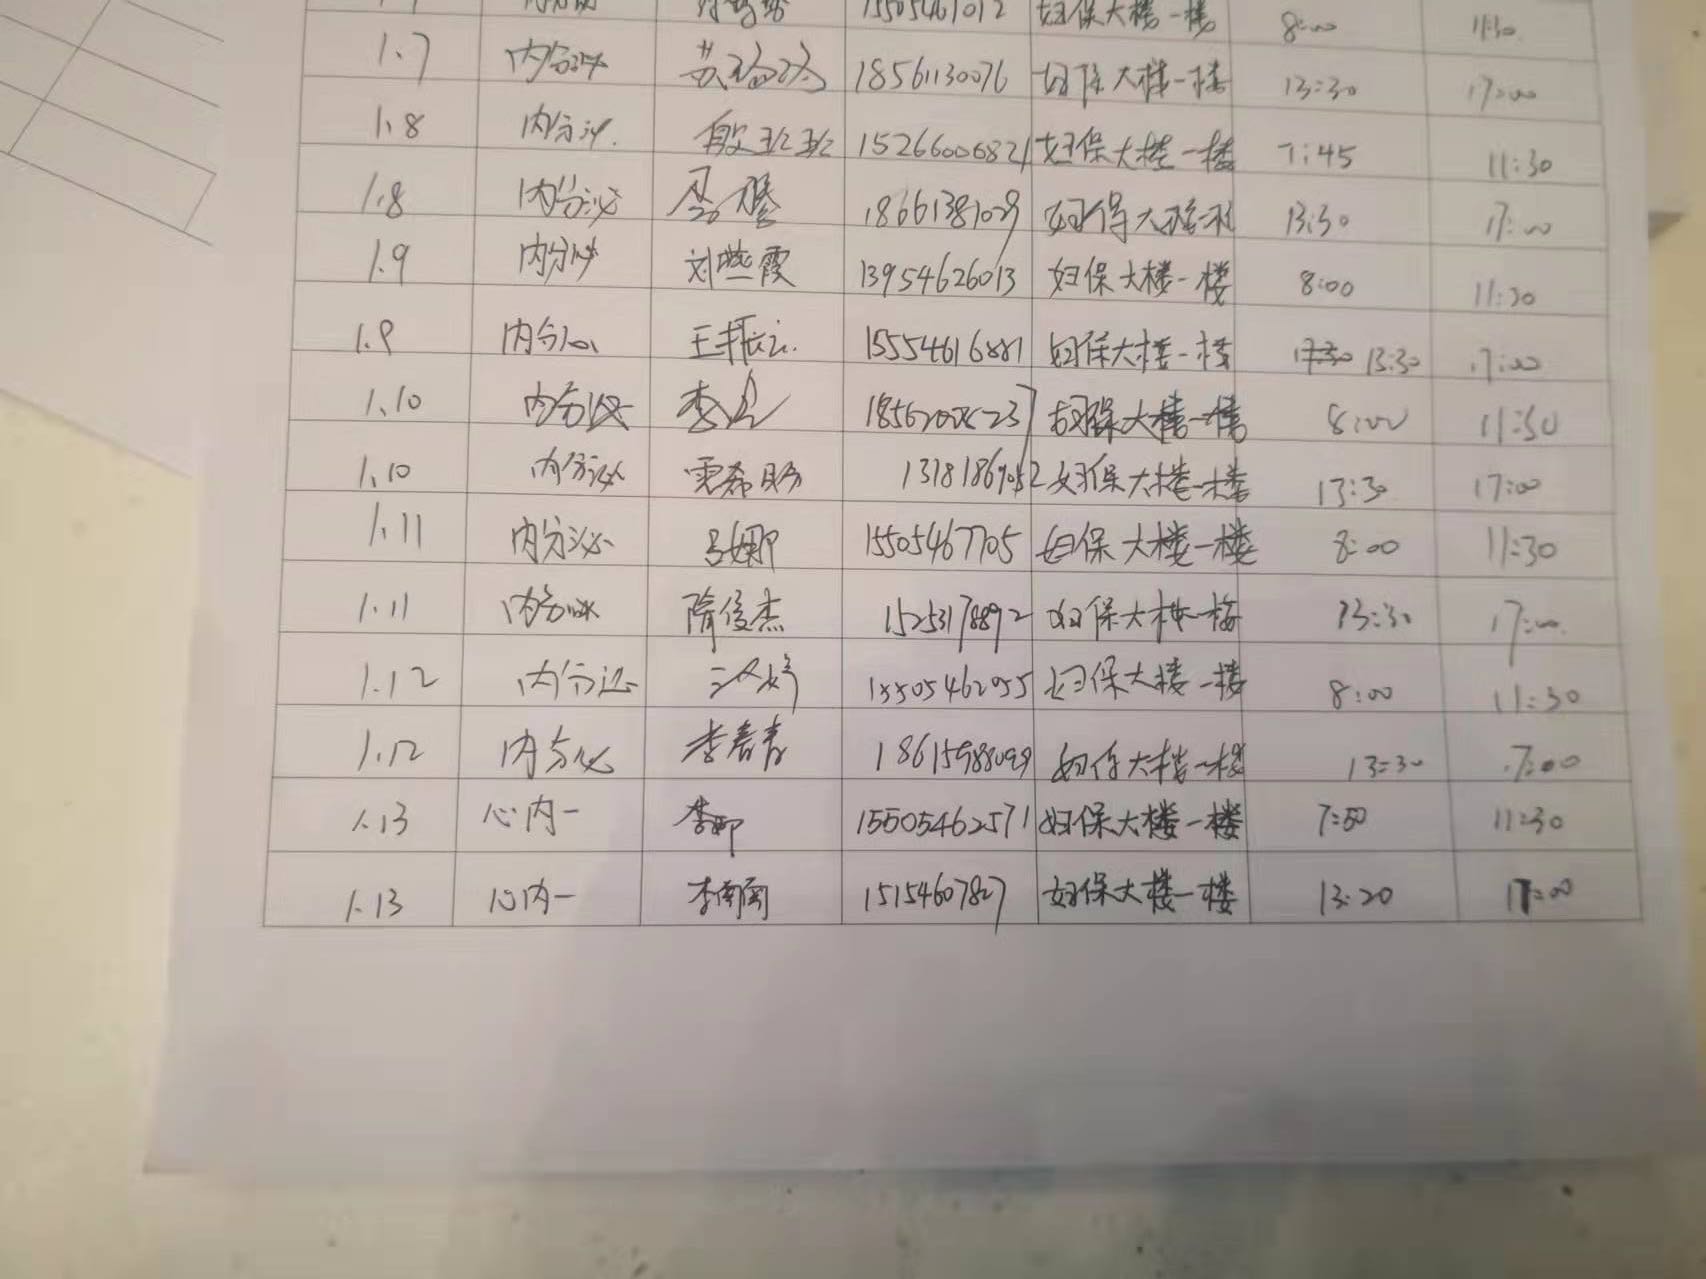 15505461012 妇保大楼一楼 8:00 11:30
1.7 内分泌 18561130076 妇保大楼一楼 13:30 17:00
1.8 内分泌 殷班班 15266006821 妇保大楼一楼 7:45 11:30
1.8 内分泌 18661381029 妇保大楼一楼 13:30 17:00
1.9 内分泌 刘燕霞 13954626013 妇保大楼一楼 8:00 11:30
1.9 内分泌 王振云 15554616881 妇保大楼一楼 13:30 17:00
1.10 内分泌 妇保大楼一楼 8:00 11:30
1.10 内分泌 妇保大楼一楼 13:30 17:00
1.11 内分泌 吕娜 15505467705 妇保大楼一楼 8:00 11:30
1.11 内分泌 隋俊杰 15253178892 妇保大楼一楼 13:30 17:00
1.12 内分泌 15505462055 妇保大楼一楼 8:00 11:30
1.12 内分泌 李春青 妇保大楼一楼 13:30 17:00
1.13 心内一 李娜 15505462571 妇保大楼一楼 7:50 11:30
1.13 心内一 李南南 15154607827 妇保大楼一楼 13:20 17:00